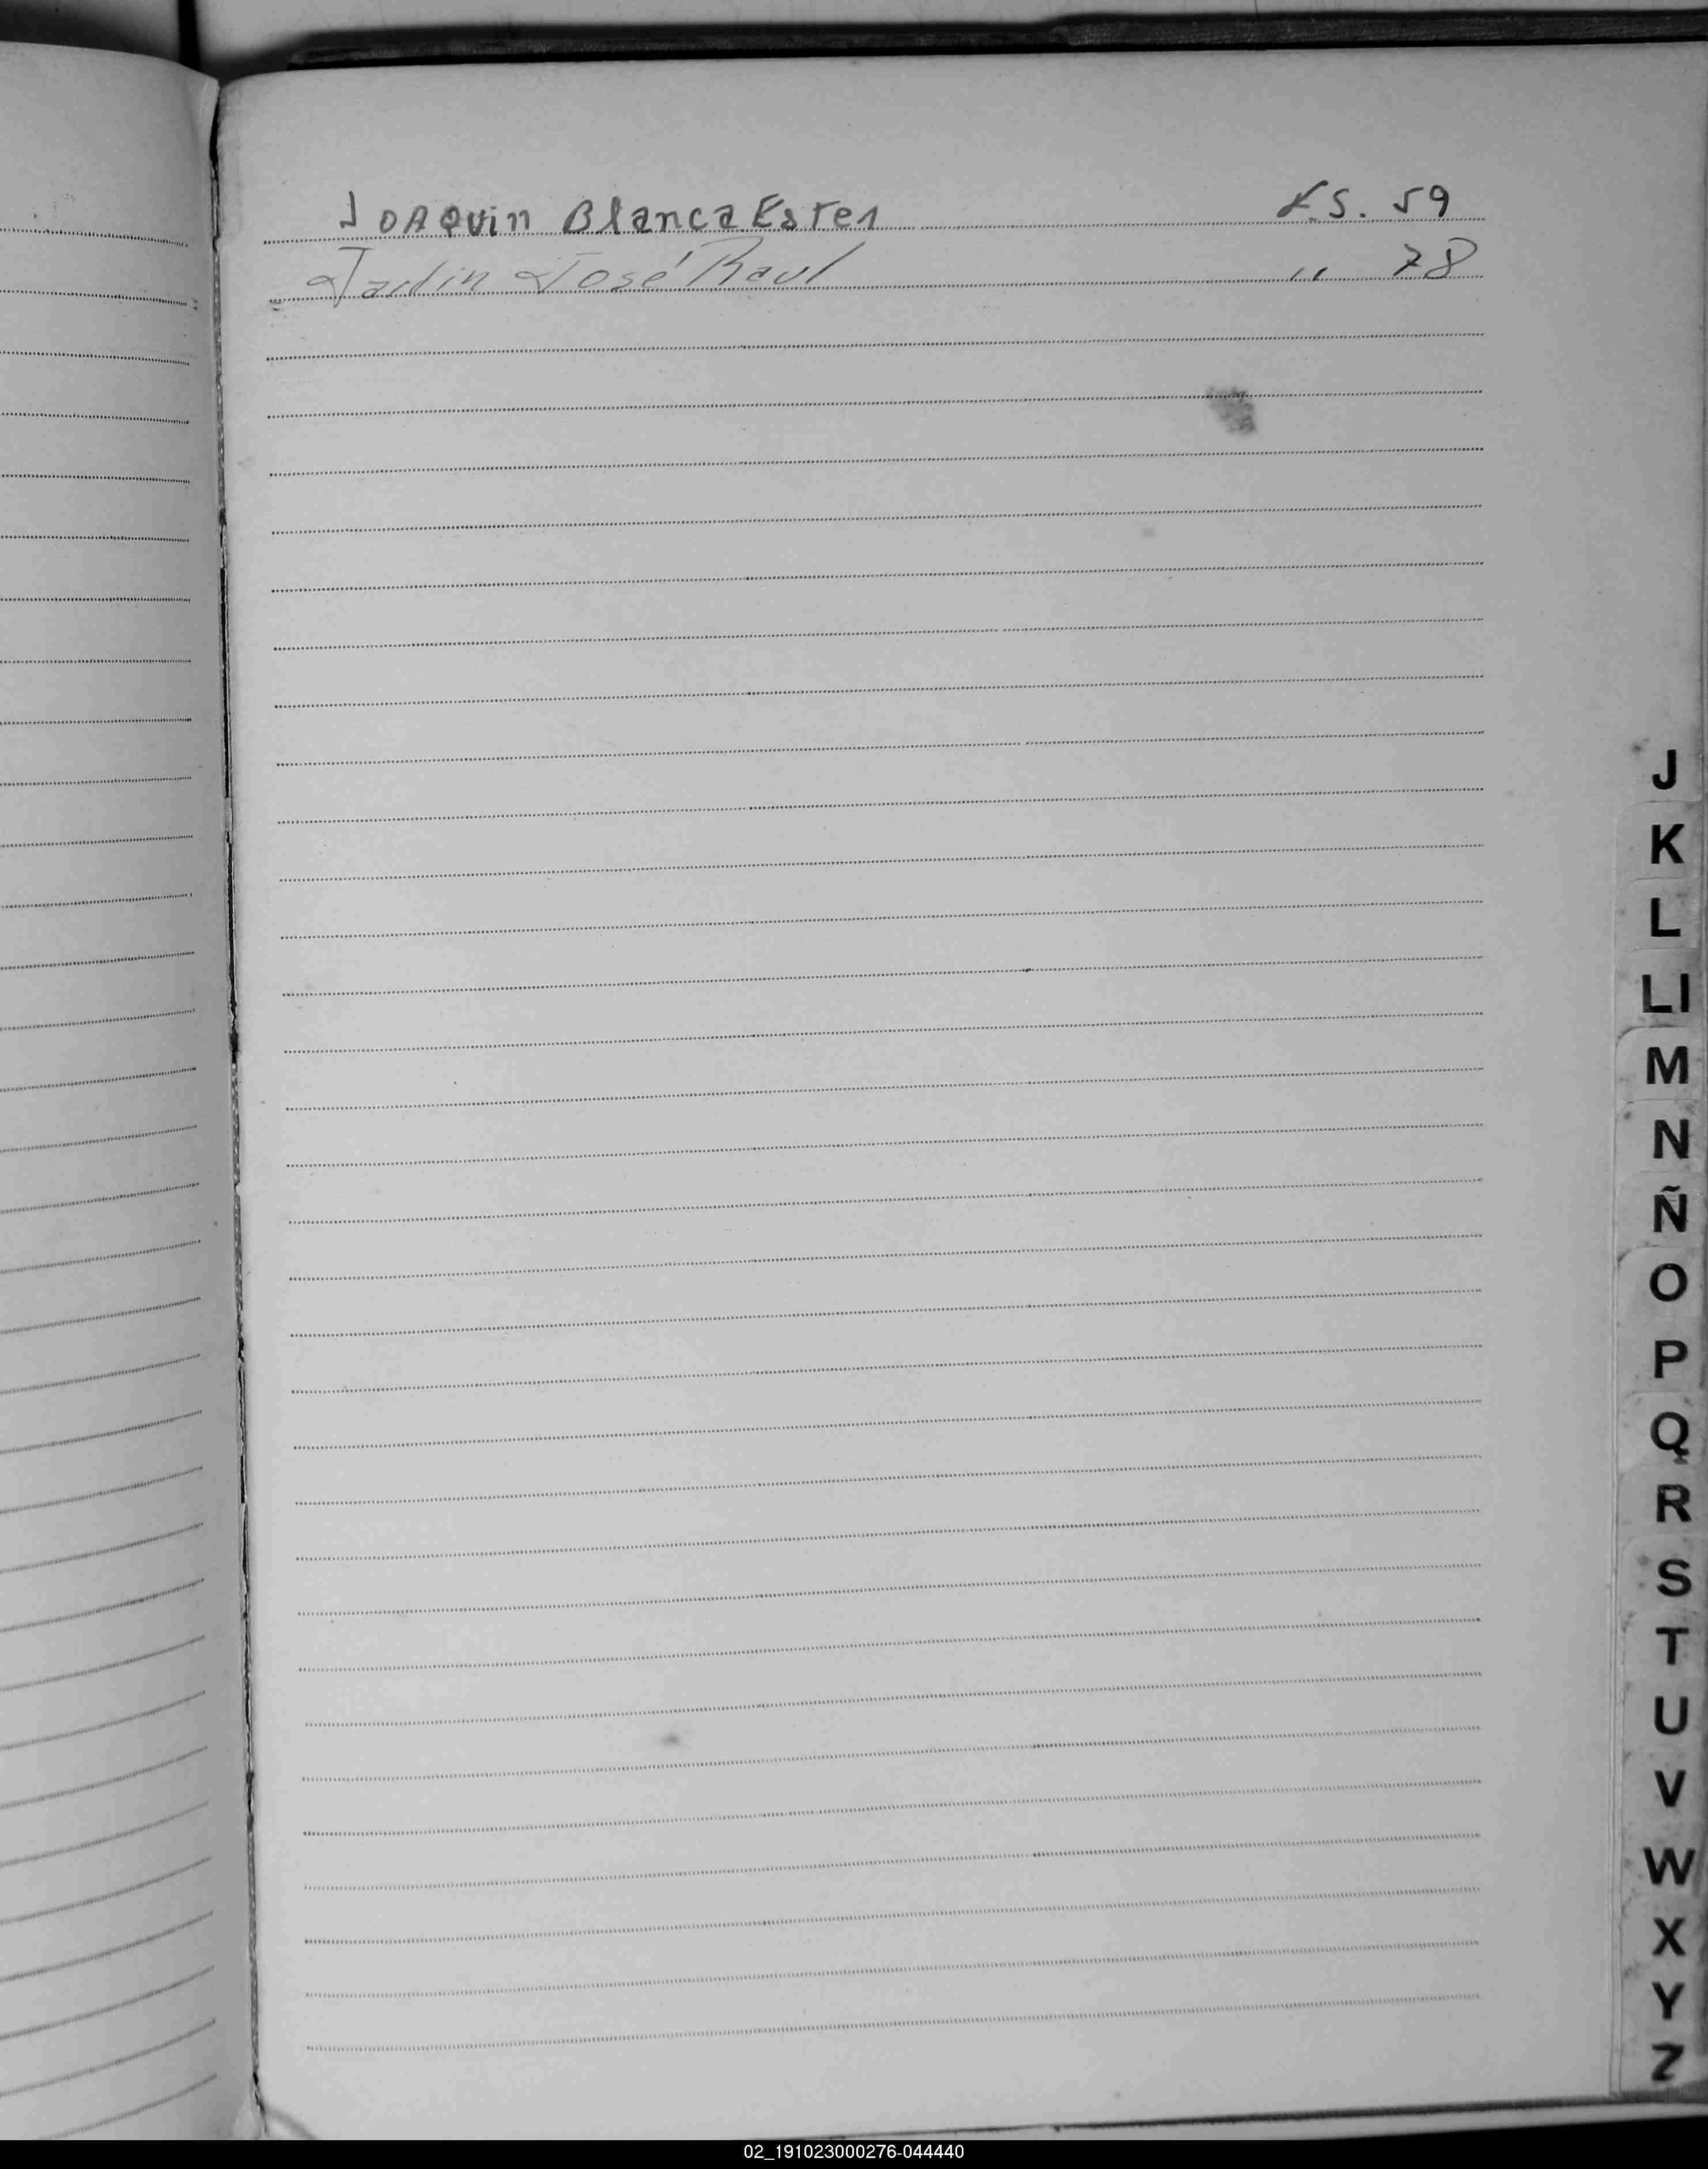 JOAQuin BlancaEster fs. 59
Jardin José Raul " 78
J
K
L
Ll
M
N
Ñ
O
P
Q
R
S
T
U
V
W
X
Y
Z
02_191023000276-044440